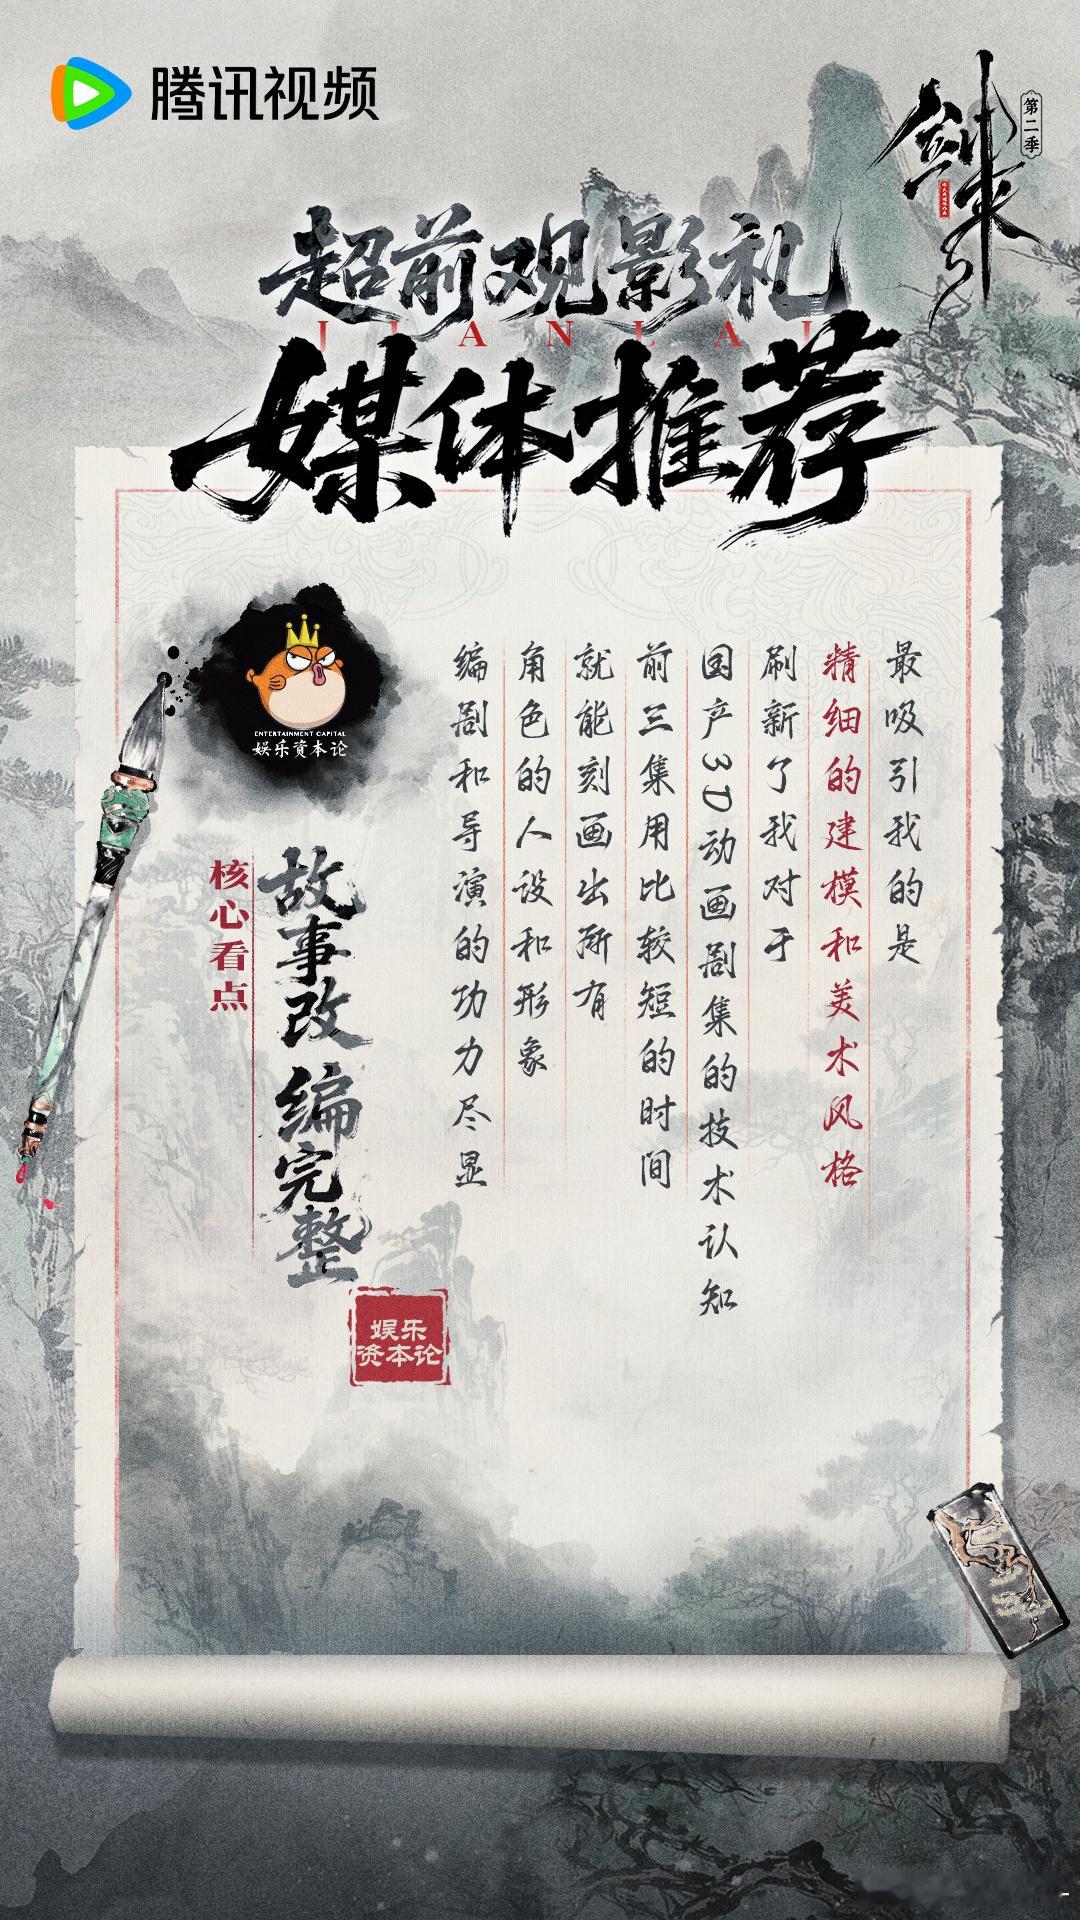 腾讯视频
剑来
第二季
超前观影礼
JIANLAI
媒体推荐
最吸引我的是
精细的建模和美术风格
刷新了我对于
国产3D动画剧集的技术认知
前三集用比较短的时间
就能刻画出所有
角色的人设和形象
编剧和导演的功力尽显
ENTERTAINMENT CAPITAL
娱乐资本论
故事改编完整
核心看点
娱乐
资本论